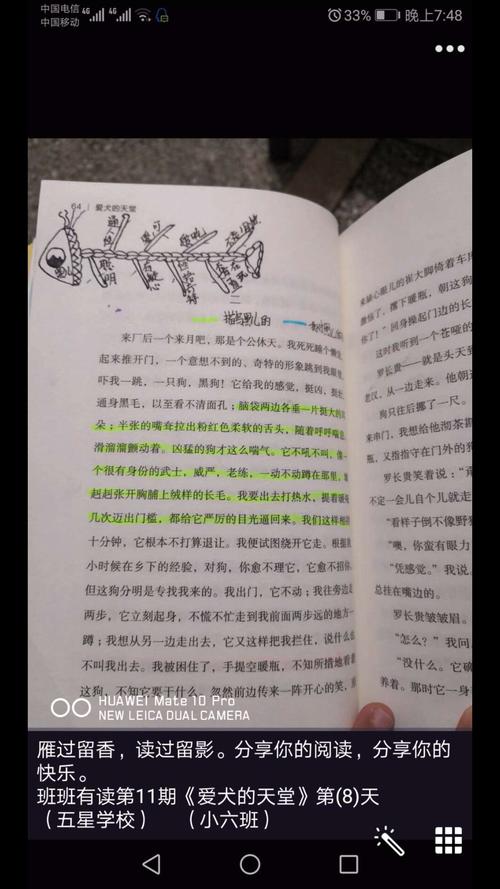 中国电信
中国移动
4G 4G
33%
晚上7:48
64
爱犬的天堂
聪明
二
描写黑儿的
来厂后一个来月吧，那是个公休天。我死死睡个懒
起来推开门，一个意想不到的、奇特的形象跳到我眼
吓我一跳，一只狗，黑狗！它给我的感觉，挺凶，挺
通身黑毛，以至看不清面孔；脑袋两边各垂一片挺大的
朵；半张的嘴耷拉出粉红色柔软的舌头，随着呼呼喘
滑溜溜颤动着。凶猛的狗才这么喘气。它不吼不叫，像一
个很有身份的武士，威严，老练，一动不动蹲在那里，
赳赳张开胸脯上绒样的长毛。我要出去打热水，提着暖
几次迈出门槛，都给它严厉的目光逼回来。我们这样相
十分钟，它根本不打算退让。我便试图绕开它走。根据
小时候在乡下的经验，对狗，你愈不理它，它愈不招你
但这狗分明是专找我来的。我出门，它不动；我往旁边
两步，它立刻起身，不慌不忙走到我前面两步远的地方一
蹲；我想从另一边走出去，它又这样把我拦住，说什么
不叫我出去。我被困住了，手提空暖瓶，不知所措地看着
这狗，不知它要干什么。忽然前边传来一阵开心的笑，
来缺心眼儿的崔大脚倚着车
激恼了，撂下暖瓶，朝这狗
你了！”回身操起门边的长
这时我听到一个苍哑的
罗长贵——就是头天到
老汉，从一边走来。他朝
狗只往后挪了一尺。
来串门，我想给他沏茶
瓶，又指指守在门外的狗
罗长贵笑着说：
不定一会儿自个儿就走
“看样子倒不像野
“噢，你蛮有眼力
“凭感觉。”我说。
总挂在嘴边的。
罗长贵皱皱眉。
“怎么？”我问，
“没什么。它确
养着。那时它一身
HUAWEI Mate 10 Pro
NEW LEICA DUAL CAMERA
雁过留香，读过留影。分享你的阅读，分享你的
快乐。
班班有读第11期《爱犬的天堂》第(8)天
（五星学校） （小六班）